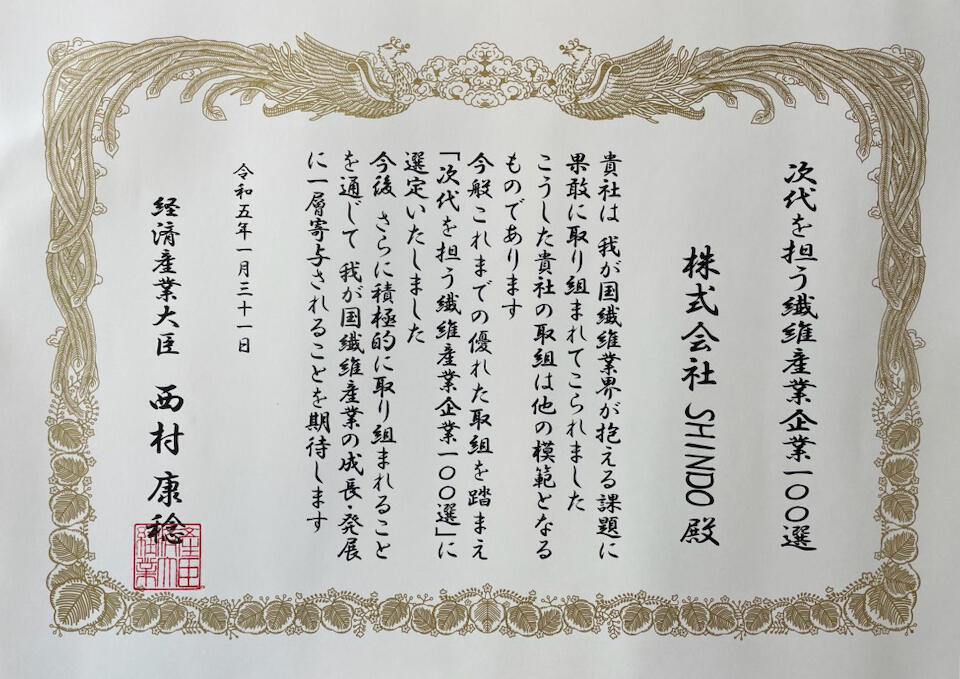 次代を担う繊維産業企業一〇〇選
株式会社 SHINDO 殿
貴社は 我が国繊維業界が抱える課題に
果敢に取り組まれてこられました
こうした貴社の取組は他の模範となる
ものであります
今般これまでの優れた取組を踏まえ
「次代を担う繊維産業企業一〇〇選」に
選定いたしました
今後 さらに積極的に取り組まれること
を通じて 我が国繊維産業の成長・発展
に一層寄与されることを期待します
令和五年一月三十一日
経済産業大臣 西村 康稔